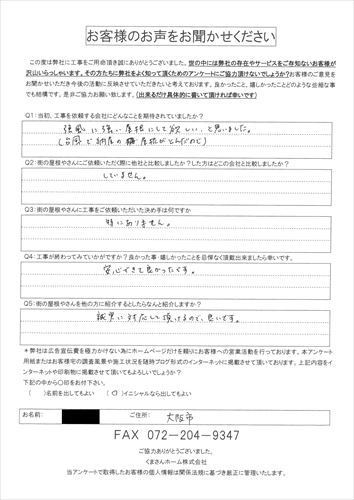 お客様のお声をお聞かせください
この度は弊社に工事をご用命頂き誠にありがとうございました。世の中には弊社の存在やサービスをご存知ないお客様が
沢山いらっしゃいます。その方たちに弊社をよく知って頂くためのアンケートにご協力頂けないでしょうか?お客様のご意見を
お聞かせいただき今後の活動に反映させていただきたいと考えております。良かったこと、嬉しかったことどのような些細な事
でも結構です。是非ご協力お願い致します。(出来るだけ具体的に書いて頂ければ幸いです)
Q1:当初、工事を依頼する会社にどんなことを期待されていましたか?
強風に強い屋根にして欲しい、と思いました。
(台風で納屋の棟屋根がとんだので)
Q2:街の屋根やさんにご依頼いただく際に他社と比較しましたか?した方はどこの会社と比較しましたか?
していません。
Q3:街の屋根やさんに工事をご依頼いただいた決め手は何ですか
特にありません。
Q4:工事が終わってみていかがですか?良かった事・嬉しかったことを忌憚なく頂戴出来ましたら幸いです。
安心できて良かったです。
Q5:街の屋根やさんを他の方に紹介するとしたらなんと紹介しますか?
誠実に対応して頂けるので、良いです。
*弊社は広告宣伝費を極力かけない為にホームページだけを頼りにお客様への営業活動を行っております。本アンケート
用紙またはお客様宅の調査風景や施工状況を随時ブログ形式のインターネットに掲載させて頂いております。上記内容をイ
ンターネットや印刷物に掲載させて頂いてもよろしいでしょうか?
下記の中から〇印をお付下さい。
( )名前を出してもよい (〇)イニシャルなら出してもよい
お名前: ご住所: 大阪市
FAX 072-204-9347
ご協力ありがとうございました。
くまさんホーム株式会社
当アンケートで取得したお客様の個人情報は関係法規に基づき厳正に管理いたします。